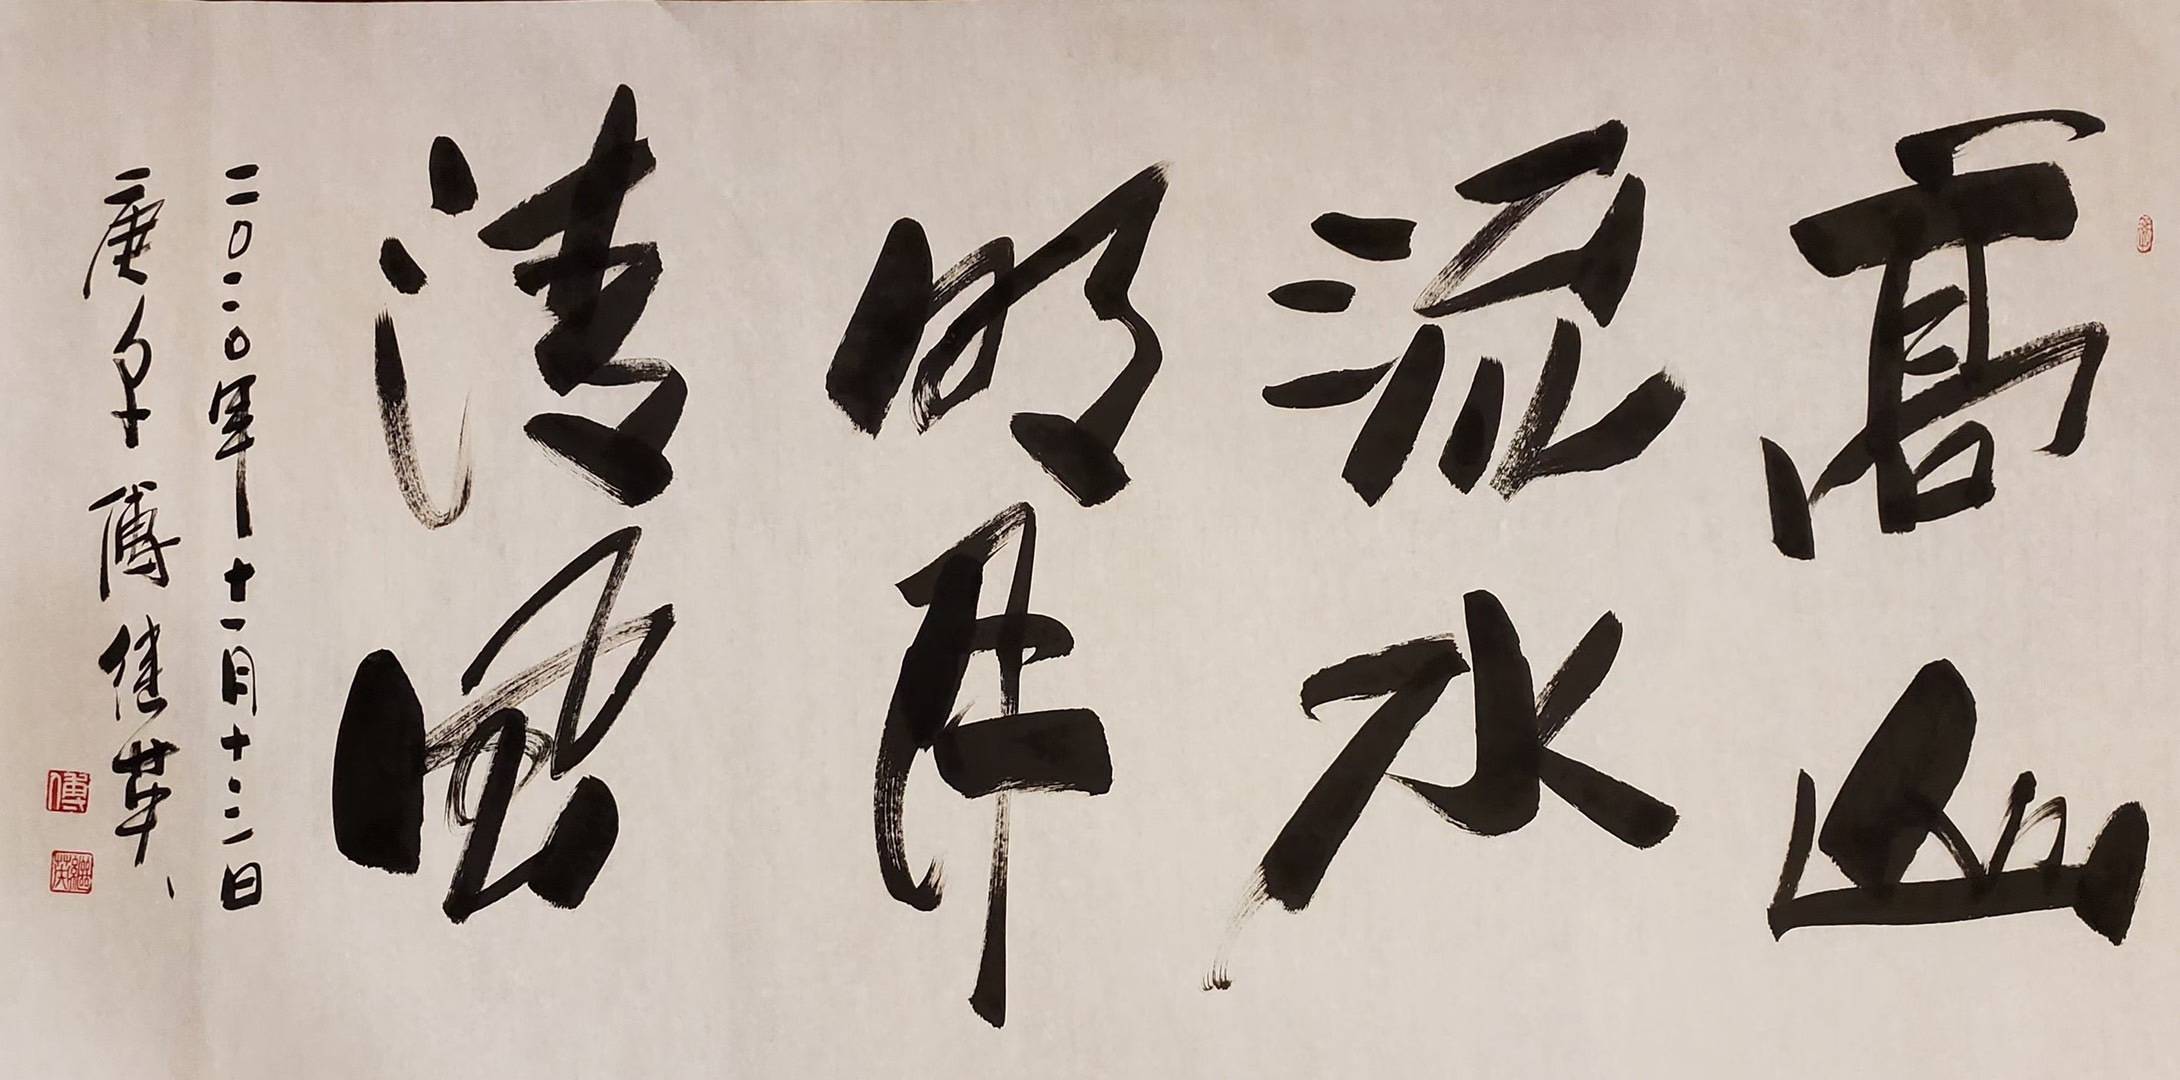 高山
流水
明月
清風
二〇二〇年十一月十二日
庚子傅继英
傅
繼英